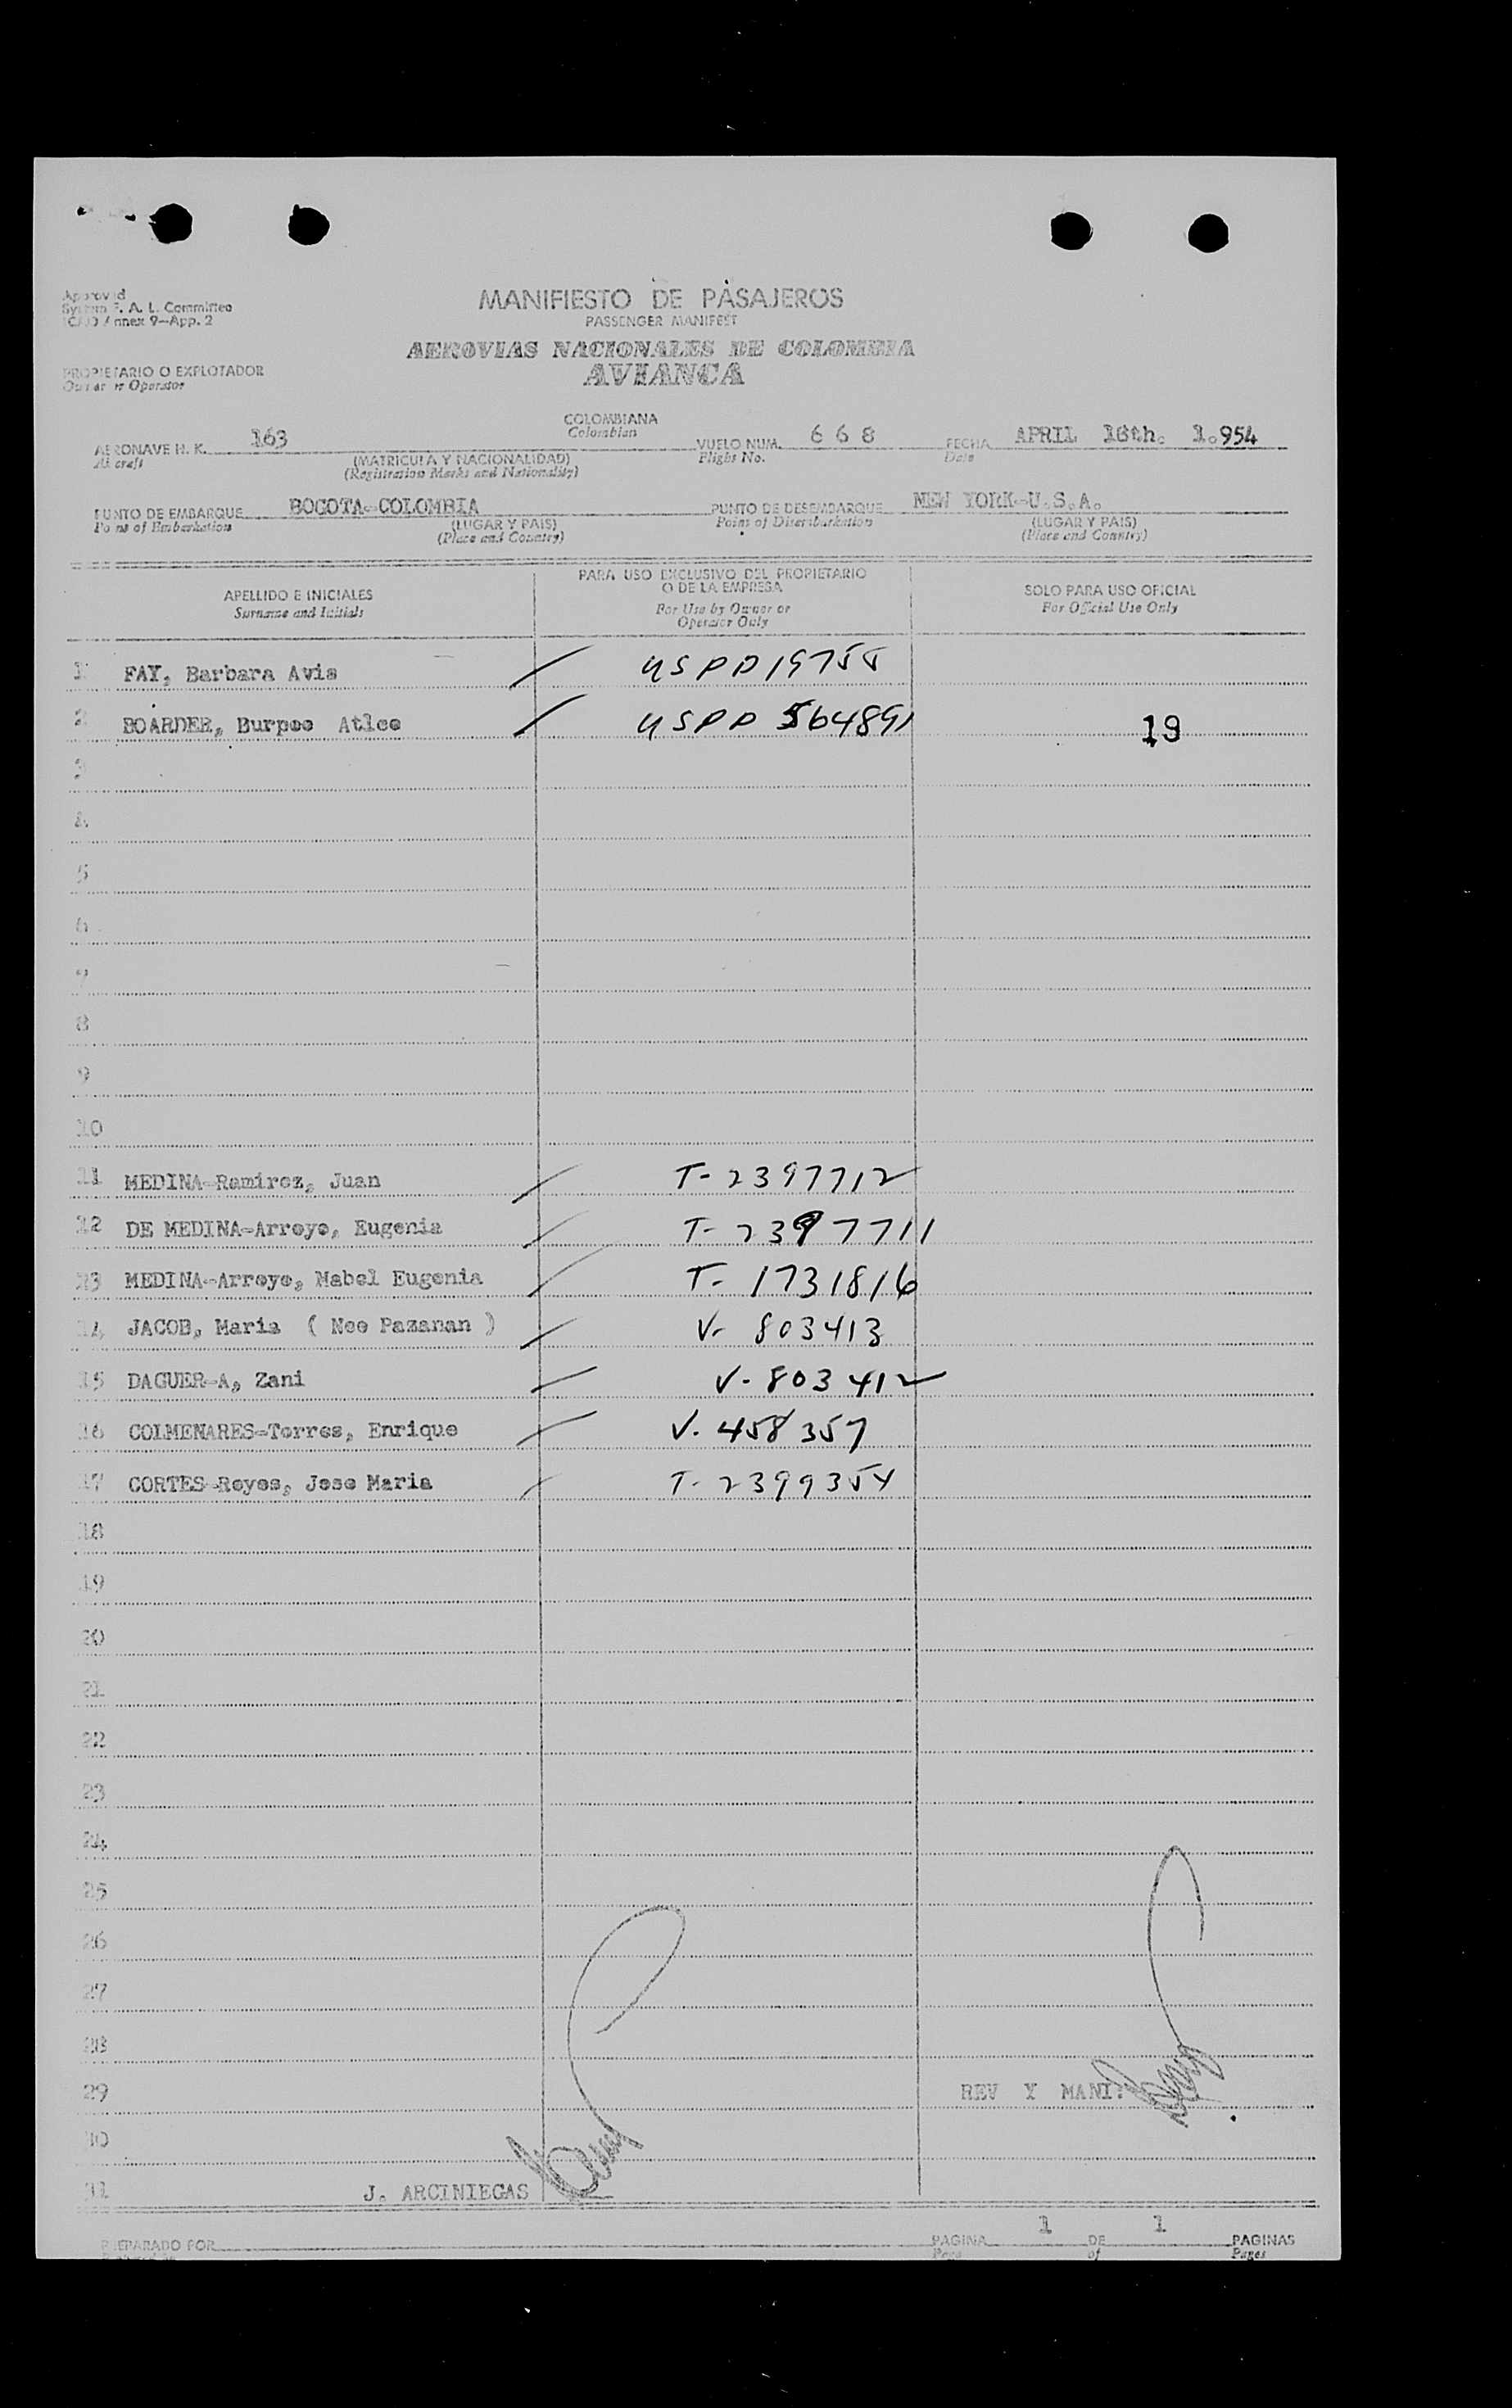 Approved
System F. A. L. Committee
ICAO Annex 9—App. 2
MANIFIESTO DE PASAJEROS
PASSENGER MANIFEST
AEROVIAS NACIONALES DE COLOMBIA
AVIANCA
PROPIETARIO O EXPLOTADOR
Owner or Operator
AERONAVE H. K. 163 COLOMBIANA VUELO NUM. 6 6 8 FECHA APRIL 16th. 1.954
Aircraft Colombian Flight No. Date
(MATRICULA Y NACIONALIDAD)
(Registration Marks and Nationality)
PUNTO DE EMBARQUE BOGOTA-COLOMBIA PUNTO DE DESEMBARQUE NEW YORK-U.S.A.
Point of Embarkation (LUGAR Y PAIS) Point of Disembarkation (LUGAR Y PAIS)
(Place and Country) (Place and Country)
APELLIDO E INICIALES PARA USO EXCLUSIVO DEL PROPIETARIO O DE LA EMPRESA SOLO PARA USO OFICIAL
Surname and Initials For Use by Owner or Operator Only For Official Use Only
1 FAY, Barbara Avis USPP19755
2 BOARDER, Burpee Atlee USPP 564891 19
3
4
5
6
7
8
9
10
11 MEDINA-Ramirez, Juan T-2397712
12 DE MEDINA-Arroyo, Eugenia T-2397711
13 MEDINA-Arroyo, Mabel Eugenia T-1731816
14 JACOB, Maria ( Nee Pazanan ) V-803413
15 DAGUER-A, Zani V-803412
16 COLMENARES-Torres, Enrique V.458357
17 CORTES-Reyes, Jose Maria T-2399354
18
19
20
21
22
23
24
25
26
27
28
29 REV Y MANI:
30
31 J. ARCINIEGAS
PREPARADO POR PAGINA 1 DE 1 PAGINAS
Page of Pages